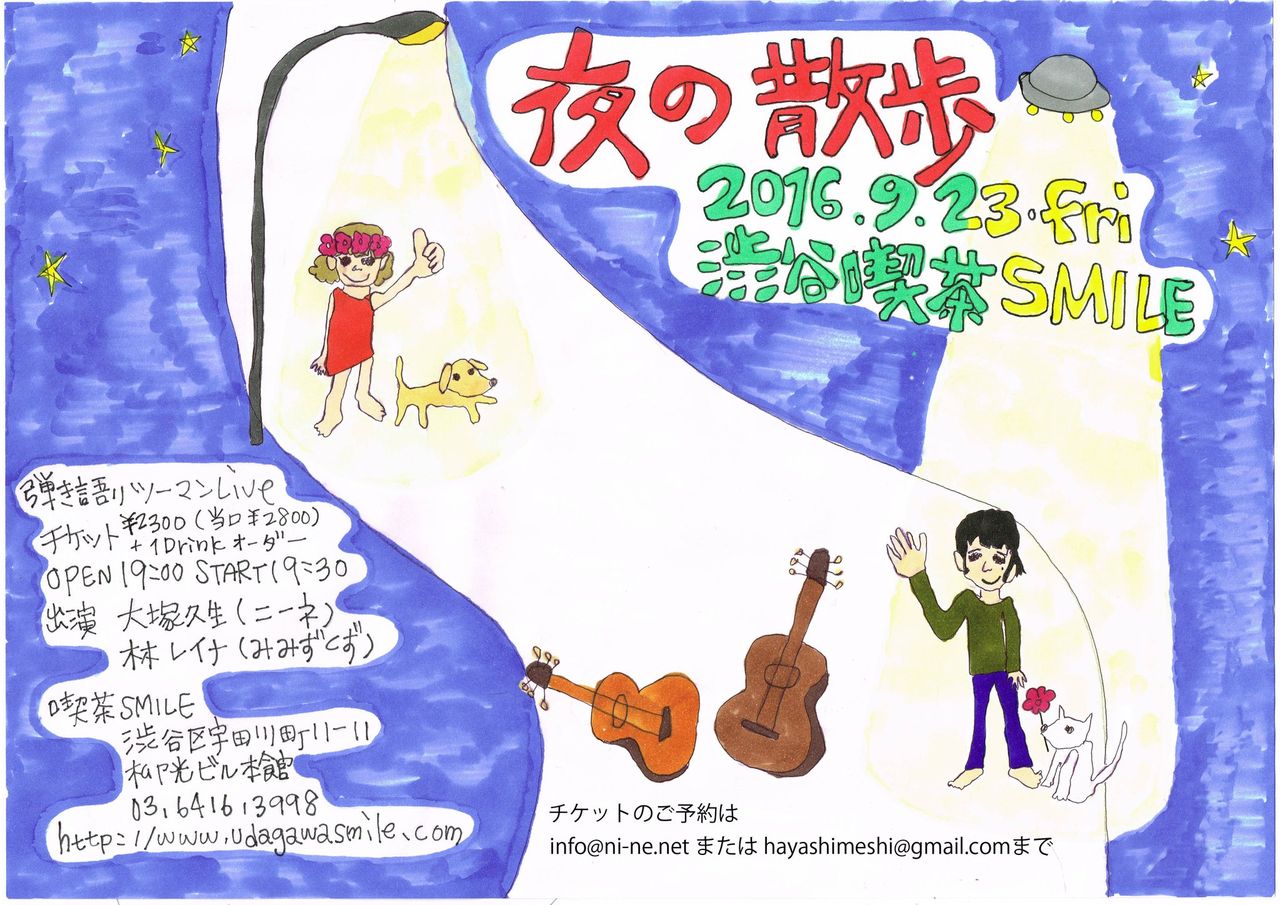 夜の散歩
2016.9.23.fri
渋谷喫茶SMILE
弾き語りツーマンLive
チケット ¥2300(当日¥2800)
+1Drinkオーダー
OPEN 19:00 START 19:30
出演 大塚久生(ニーネ)
林レイナ(みみずくず)
喫茶SMILE
渋谷区宇田川町11-11
柳光ビル本館
03.6416.3998
http://www.udagawasmile.com
チケットのご予約は
info@ni-ne.net または hayashimeshi@gmail.comまで